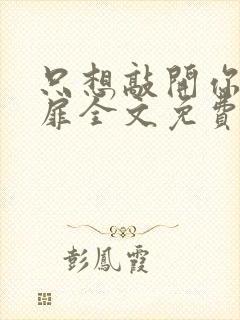 只想敲開你
扉全文免費
彭鳳霞